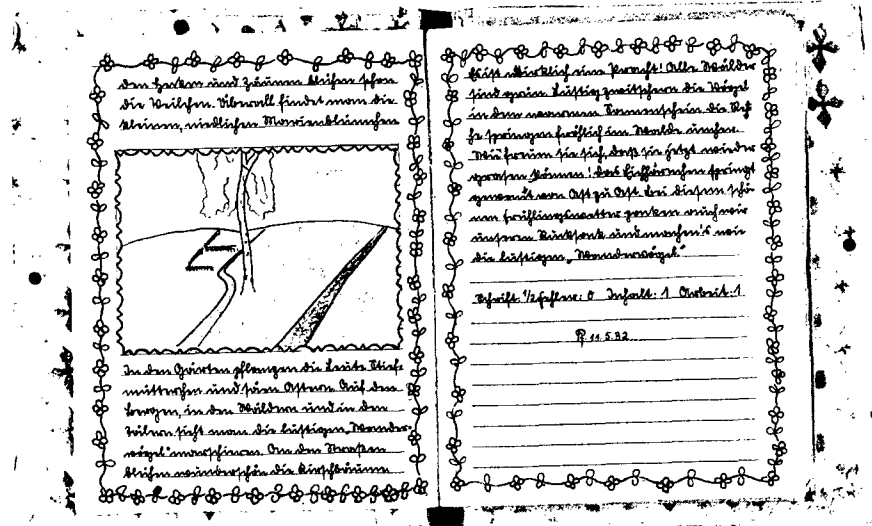 den Hecken und Zäunen blühen schon
die Veilchen. Überall findet man die
kleinen, niedlichen Marienblümchen
In den Gärten pflanzen die Leute Stief-
mütterchen und säen Astern. Auf den
Bergen, in den Wäldern und in den
Tälern sieht man die lustigen „Wander-
vögel" marschieren. An den Straßen
blühen wunderschön die Kirschbäume
Es ist wirklich eine Pracht! Alle Wälder
sind grün. Lustig zwitschern die Vögel
in dem warmen Sonnenschein. die Re-
he springen fröhlich im Walde umher.
Wie freuen sie sich, daß sie jetzt wieder
grasen können! das Eichhörnchen springt
gewandt von Ast zu Ast. Bei diesem schö-
nen Frühlingswetter packen auch wir
unseren Rucksack und machen's wie
die lustigen „Wandervögel."
Schrift ½ Fehler: 0 Inhalt: 1 Arbeit: 1
11.5.32